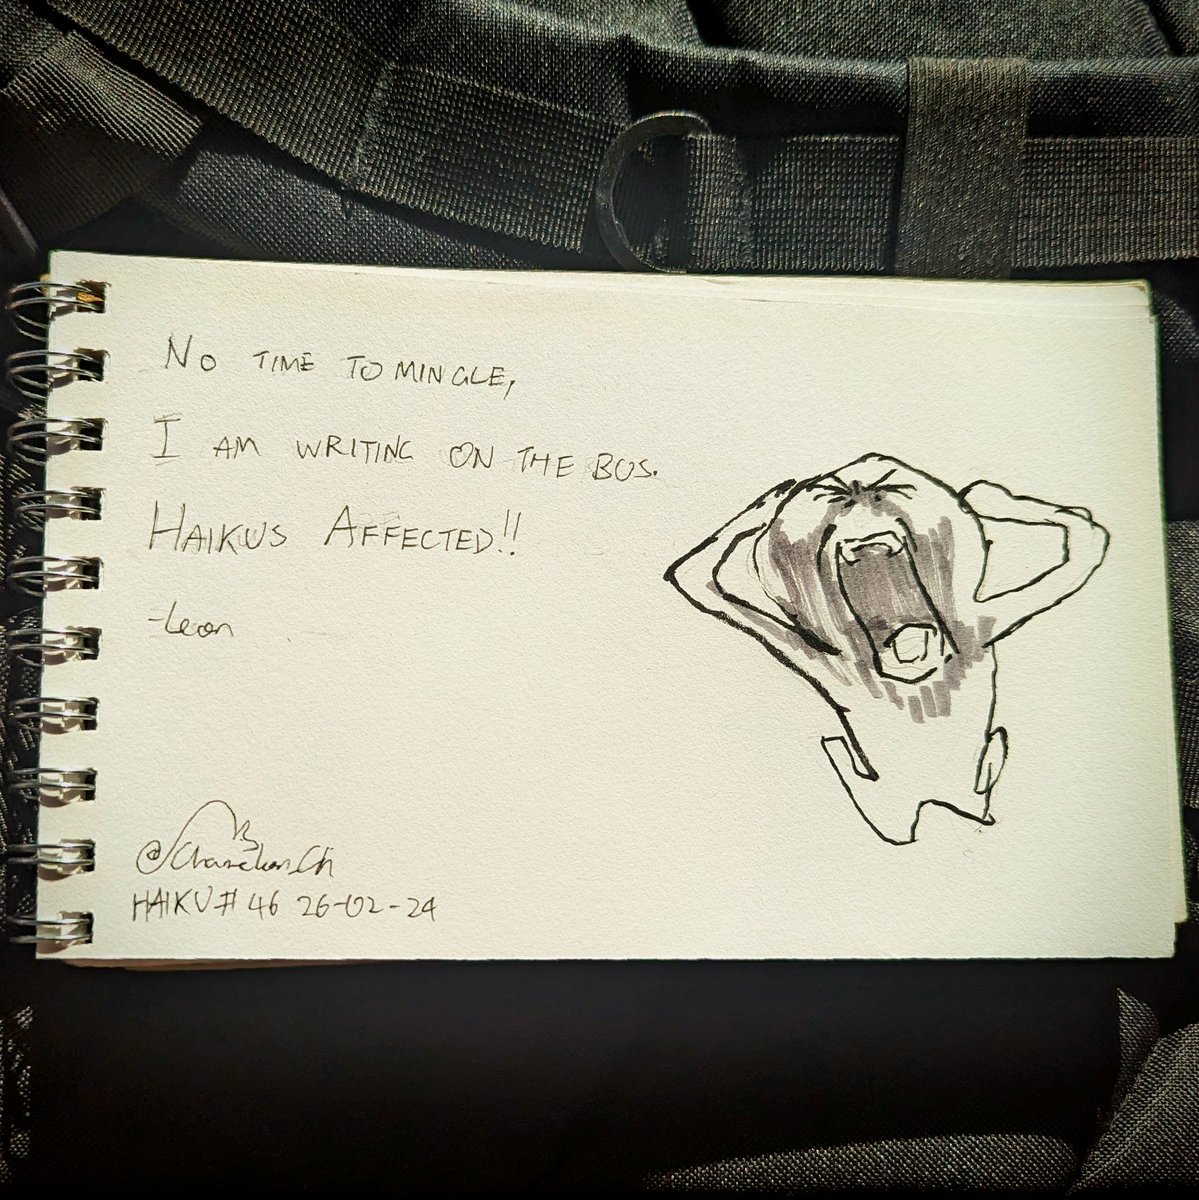 No TIME TO MINGLE,
I AM WRITING ON THE BUS.
HAIKUS AFFECTED!!
-Leon
HAIKU # 46 26-02-24